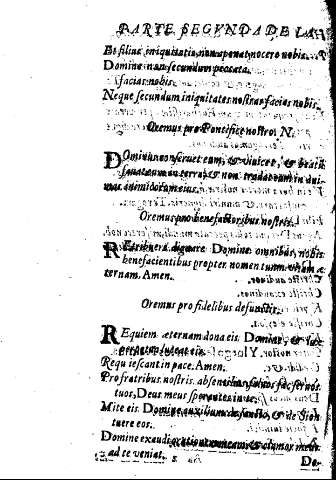 PARTE SEGVNDA DE LA
Et filius iniquitatis non aponat nocere nobis.
Domine non secundum peccata
facias nobis.
Neque secundum iniquitates nostras facias nobis.
Oremus pro Pontifice nostro N.
Dominus conseruet eum, & viuicet, & beatū
faciat eum in terra, & non tradat eum in ani
mam inimicorum eius.
Oremus pro benefactoribus nostris.
REtribuere dignare Domine omnibus, nobis
benefacientibus propter nomen tuum vitam æ
ternam. Amen.
Oremus pro fidelibus defunctis.
REquiem æternam dona eis Domine, & lux
perpetua luceat eis.
Requiescant in pace. Amen.
Pro fratribus nostris absentibus saluos fac seruos
tuos, Deus meus sperantes in te.
Mite eis Domine auxilium de sancto, & de Sion
tuere eos.
Domine exaudi orationem meam & clamor meus
ad te veniat.
Do-